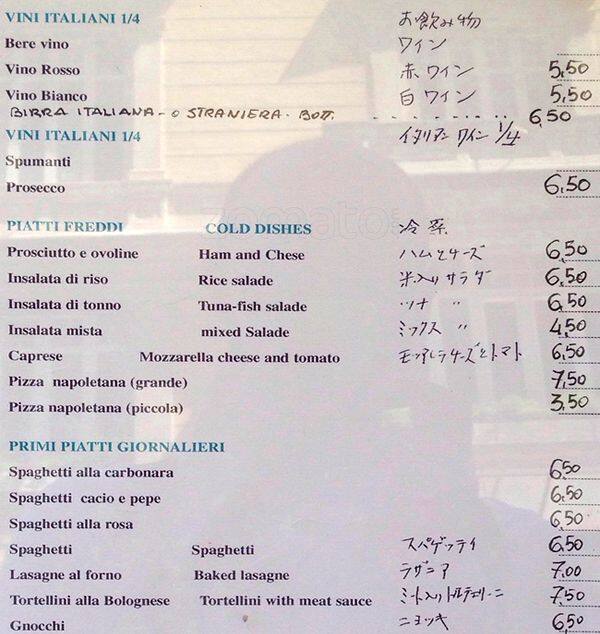 VINI ITALIANI 1/4 お飲み物
Bere vino ワイン
Vino Rosso 赤ワイン 5,50
Vino Bianco 白ワイン 5,50
BIRRA ITALIANA - O STRANIERA - BOTT. 6,50
VINI ITALIANI 1/4 イタリアンワイン 1/4
Spumanti
Prosecco 6,50
PIATTI FREDDI COLD DISHES 冷菜
Prosciutto e ovoline Ham and Chese ハムとチーズ 6,50
Insalata di riso Rice salade 米入りサラダ 6,50
Insalata di tonno Tuna-fish salade ツナ 〃 6,50
Insalata mista mixed Salade ミックス 〃 4,50
Caprese Mozzarella cheese and tomato モッアレラチーズとトマト 6,50
Pizza napoletana (grande) 7,50
Pizza napoletana (piccola) 3,50
PRIMI PIATTI GIORNALIERI
Spaghetti alla carbonara 6,50
Spaghetti cacio e pepe 6,50
Spaghetti alla rosa 6,50
Spaghetti Spaghetti スパゲッティ 6,50
Lasagne al forno Baked lasagne ラザニア 7,00
Tortellini alla Bolognese Tortellini with meat sauce ミート入りトルテェリーニ 7,50
Gnocchi ニョッキ 6,50